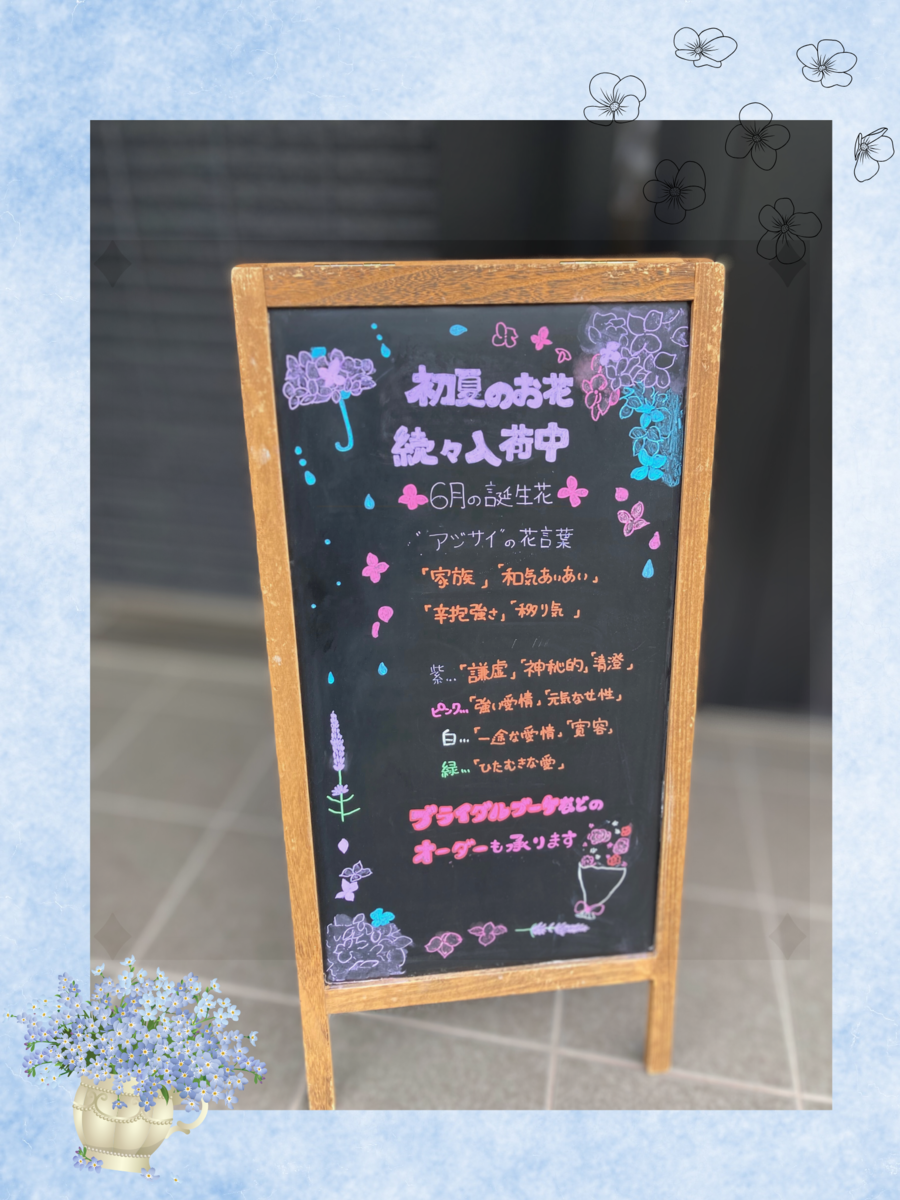 初夏のお花
続々入荷中
6月の誕生花
"アジサイ"の花言葉
「家族」「和気あいあい」
「辛抱強さ」「移り気」
紫…「謙虚」「神秘的」「清澄」
ピンク…「強い愛情」「元気な女性」
白…「一途な愛情」「寛容」
緑…「ひたむきな愛」
ブライダルブーケなどの
オーダーも承ります